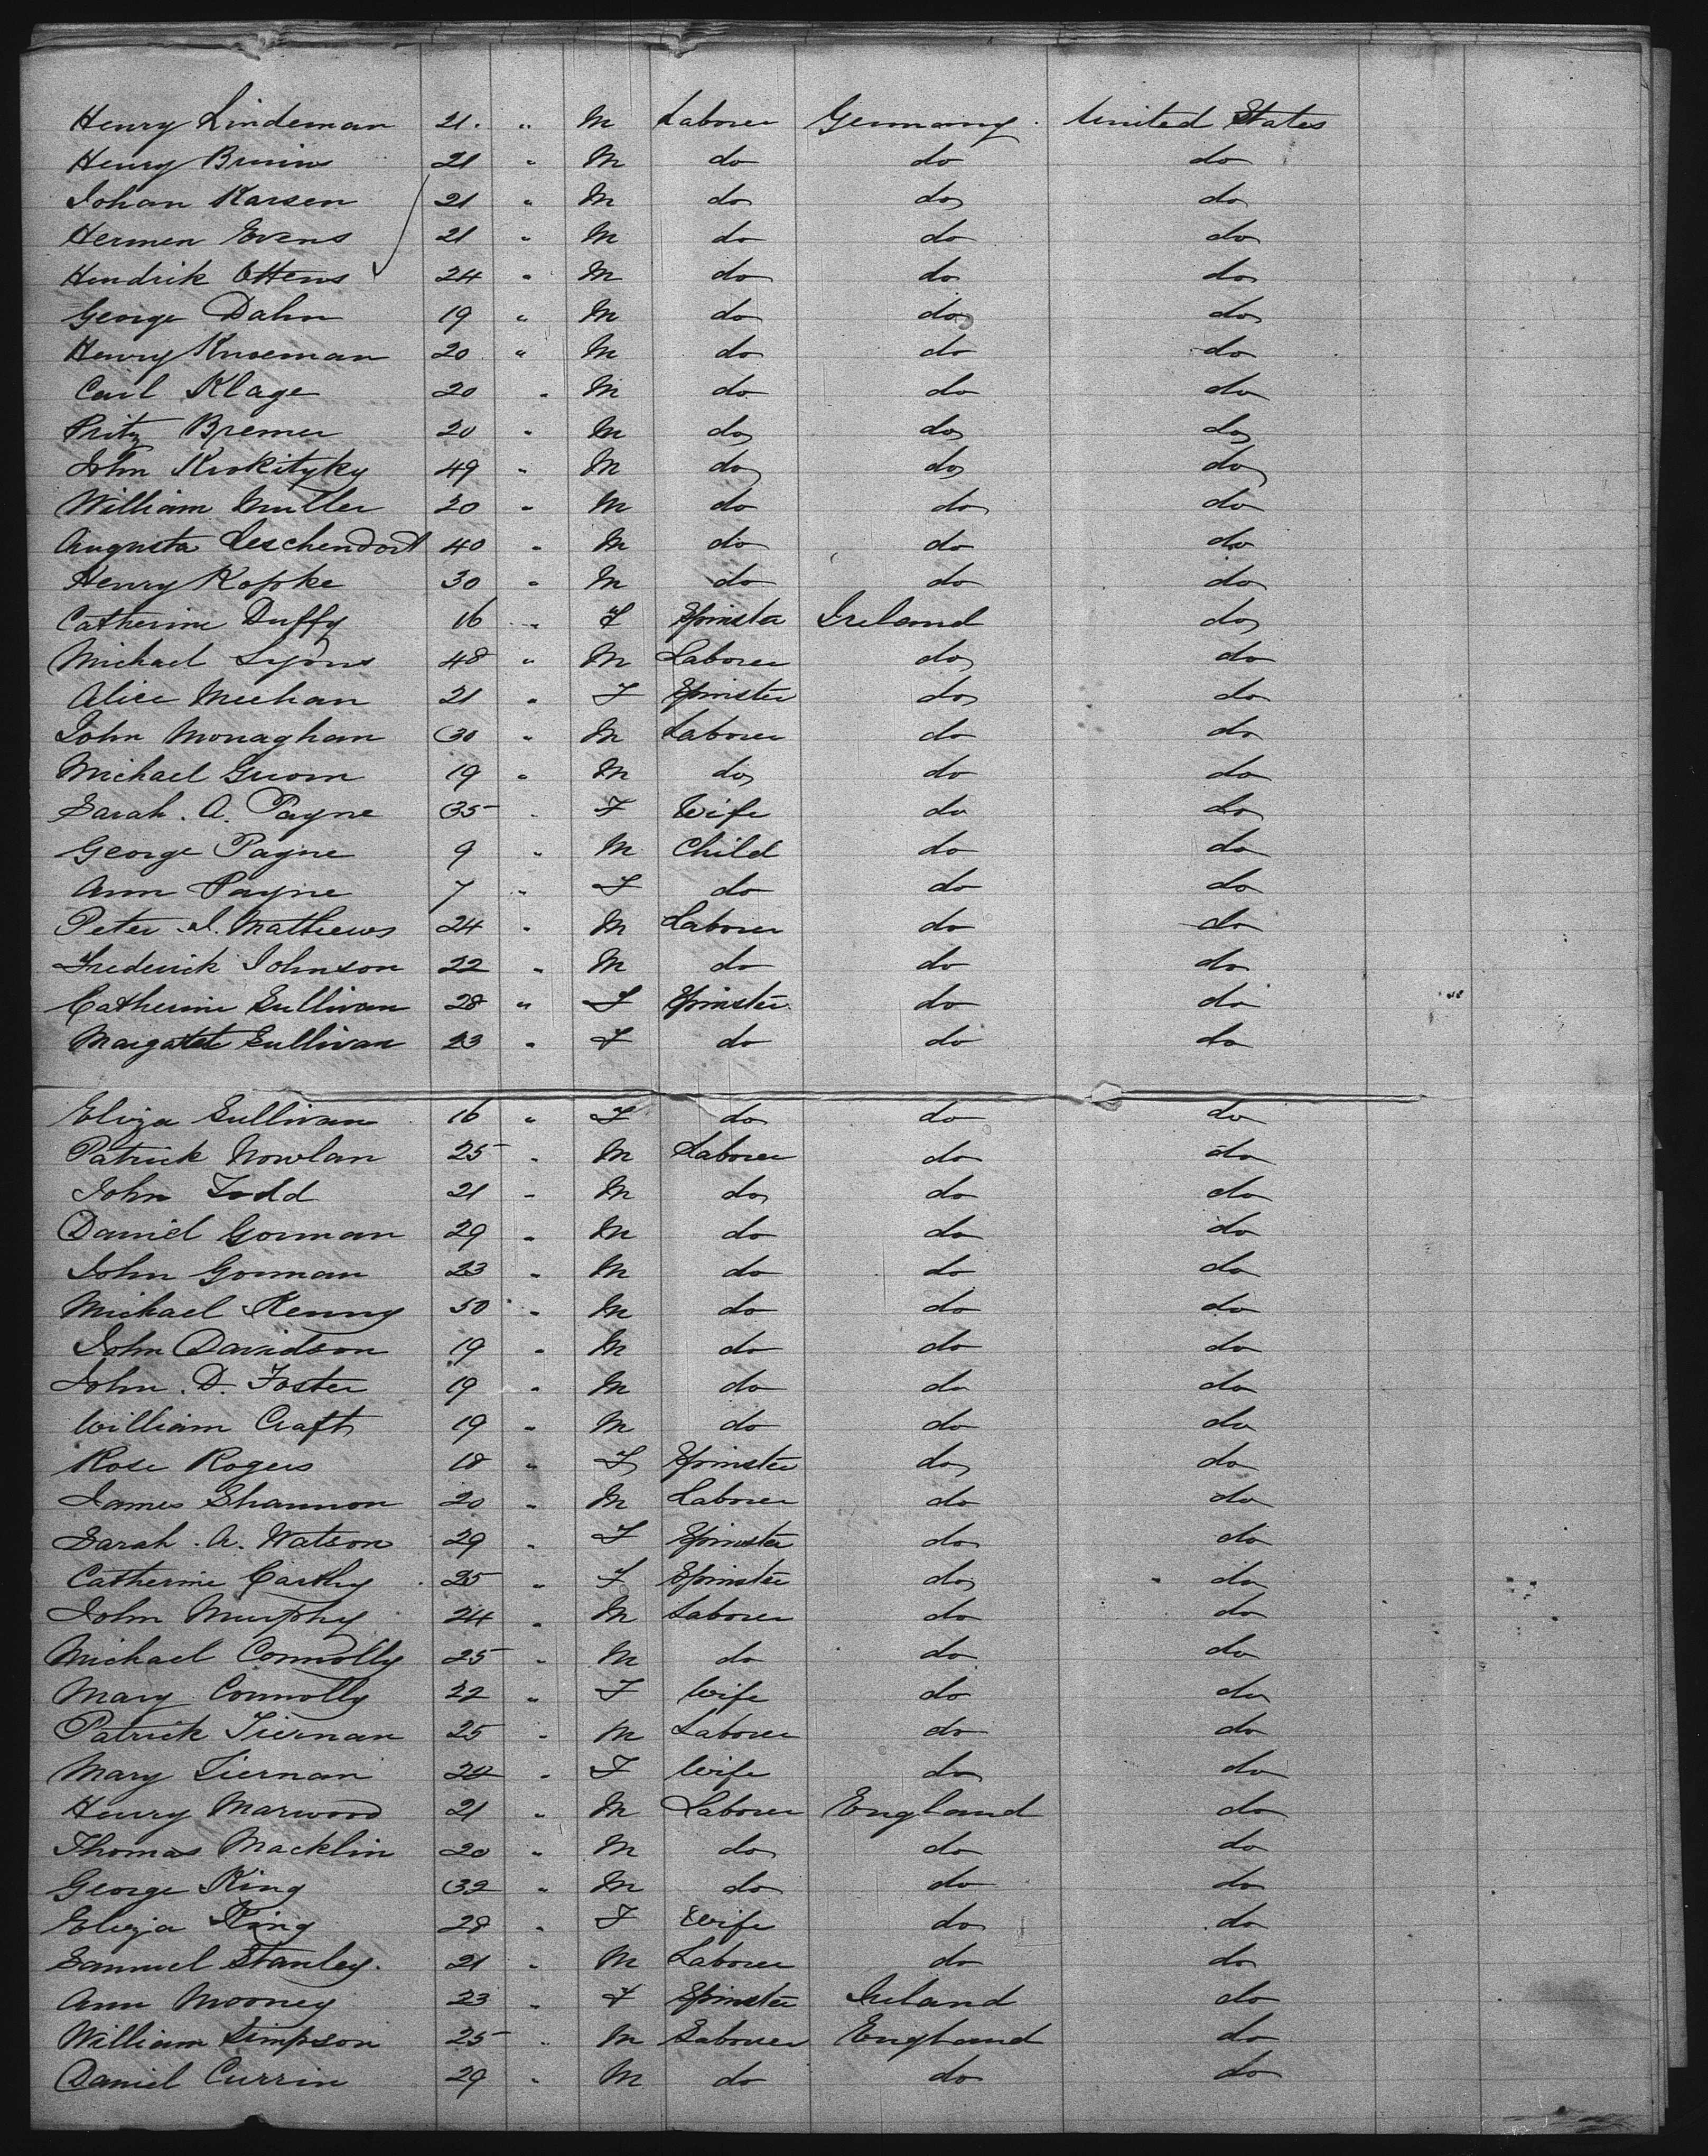 Henry Lindeman 21 " M Laborer Germany United States
Henry Bruins 21 " M do do do
Johan Karsen 21 " M do do do
Hermen Evens 21 " M do do do
Hendrik Ottens 24 " M do do do
George Dahn 19 " M do do do
Henry 20 " M do do do
Carl Klage 20 " M do do do
Fritz Bremer 20 " M do do do
John 49 " M do do do
William Muller 20 " M do do do
Augusta 40 " M do do do
Henry Kopke 30 " M do do do
Catherine Duffy 16 " F Spinster Ireland do
Michael Lyons 48 " M Laborer do do
Alice Meehan 21 " F Spinster do do
John Monaghan 30 " M Laborer do do
Michael 19 " M do do do
Sarah. A. Payne 35 " F Wife do do
George Payne 9 " M Child do do
Ann Payne 7 " F do do do
Peter J. Mathews 24 " M Laborer do do
Frederick Johnson 22 " M do do do
Catherine Sullivan 28 " F Spinster do do
Sullivan 23 " F do do do
Eliza Sullivan 16 " F do do do
Patrick Nowlan 25 " M Laborer do do
John Todd 21 " M do do do
Daniel Gorman 29 " M do do do
John Gorman 23 " M do do do
Michael Kenny 50 " M do do do
John Davidson 19 " M do do do
John. D. Foster 19 " M do do do
William Craft 19 " M do do do
Rose Rogers 18 " F Spinster do do
James Shannon 20 " M Laborer do do
Sarah. A. Watson 29 " F Spinster do do
Catherine Carthy 25 " F Spinster do do
John Murphy 24 " M Laborer do do
Michael Connolly 25 " M do do do
Mary Connolly 22 " F Wife do do
Patrick Tiernan 25 " M Laborer do do
Mary Tiernan " F Wife do do
Henry Marwood 21 " M Laborer England do
Thomas Macklin 20 " M do do do
George King 32 " M do do do
Eliza King 28 " F Wife do do
Samuel Stanley. 21 " M Laborer do do
Ann Mooney 23 " F Spinster Ireland do
William Simpson 25 " M Laborer England do
Daniel Currin 29 " M do do do